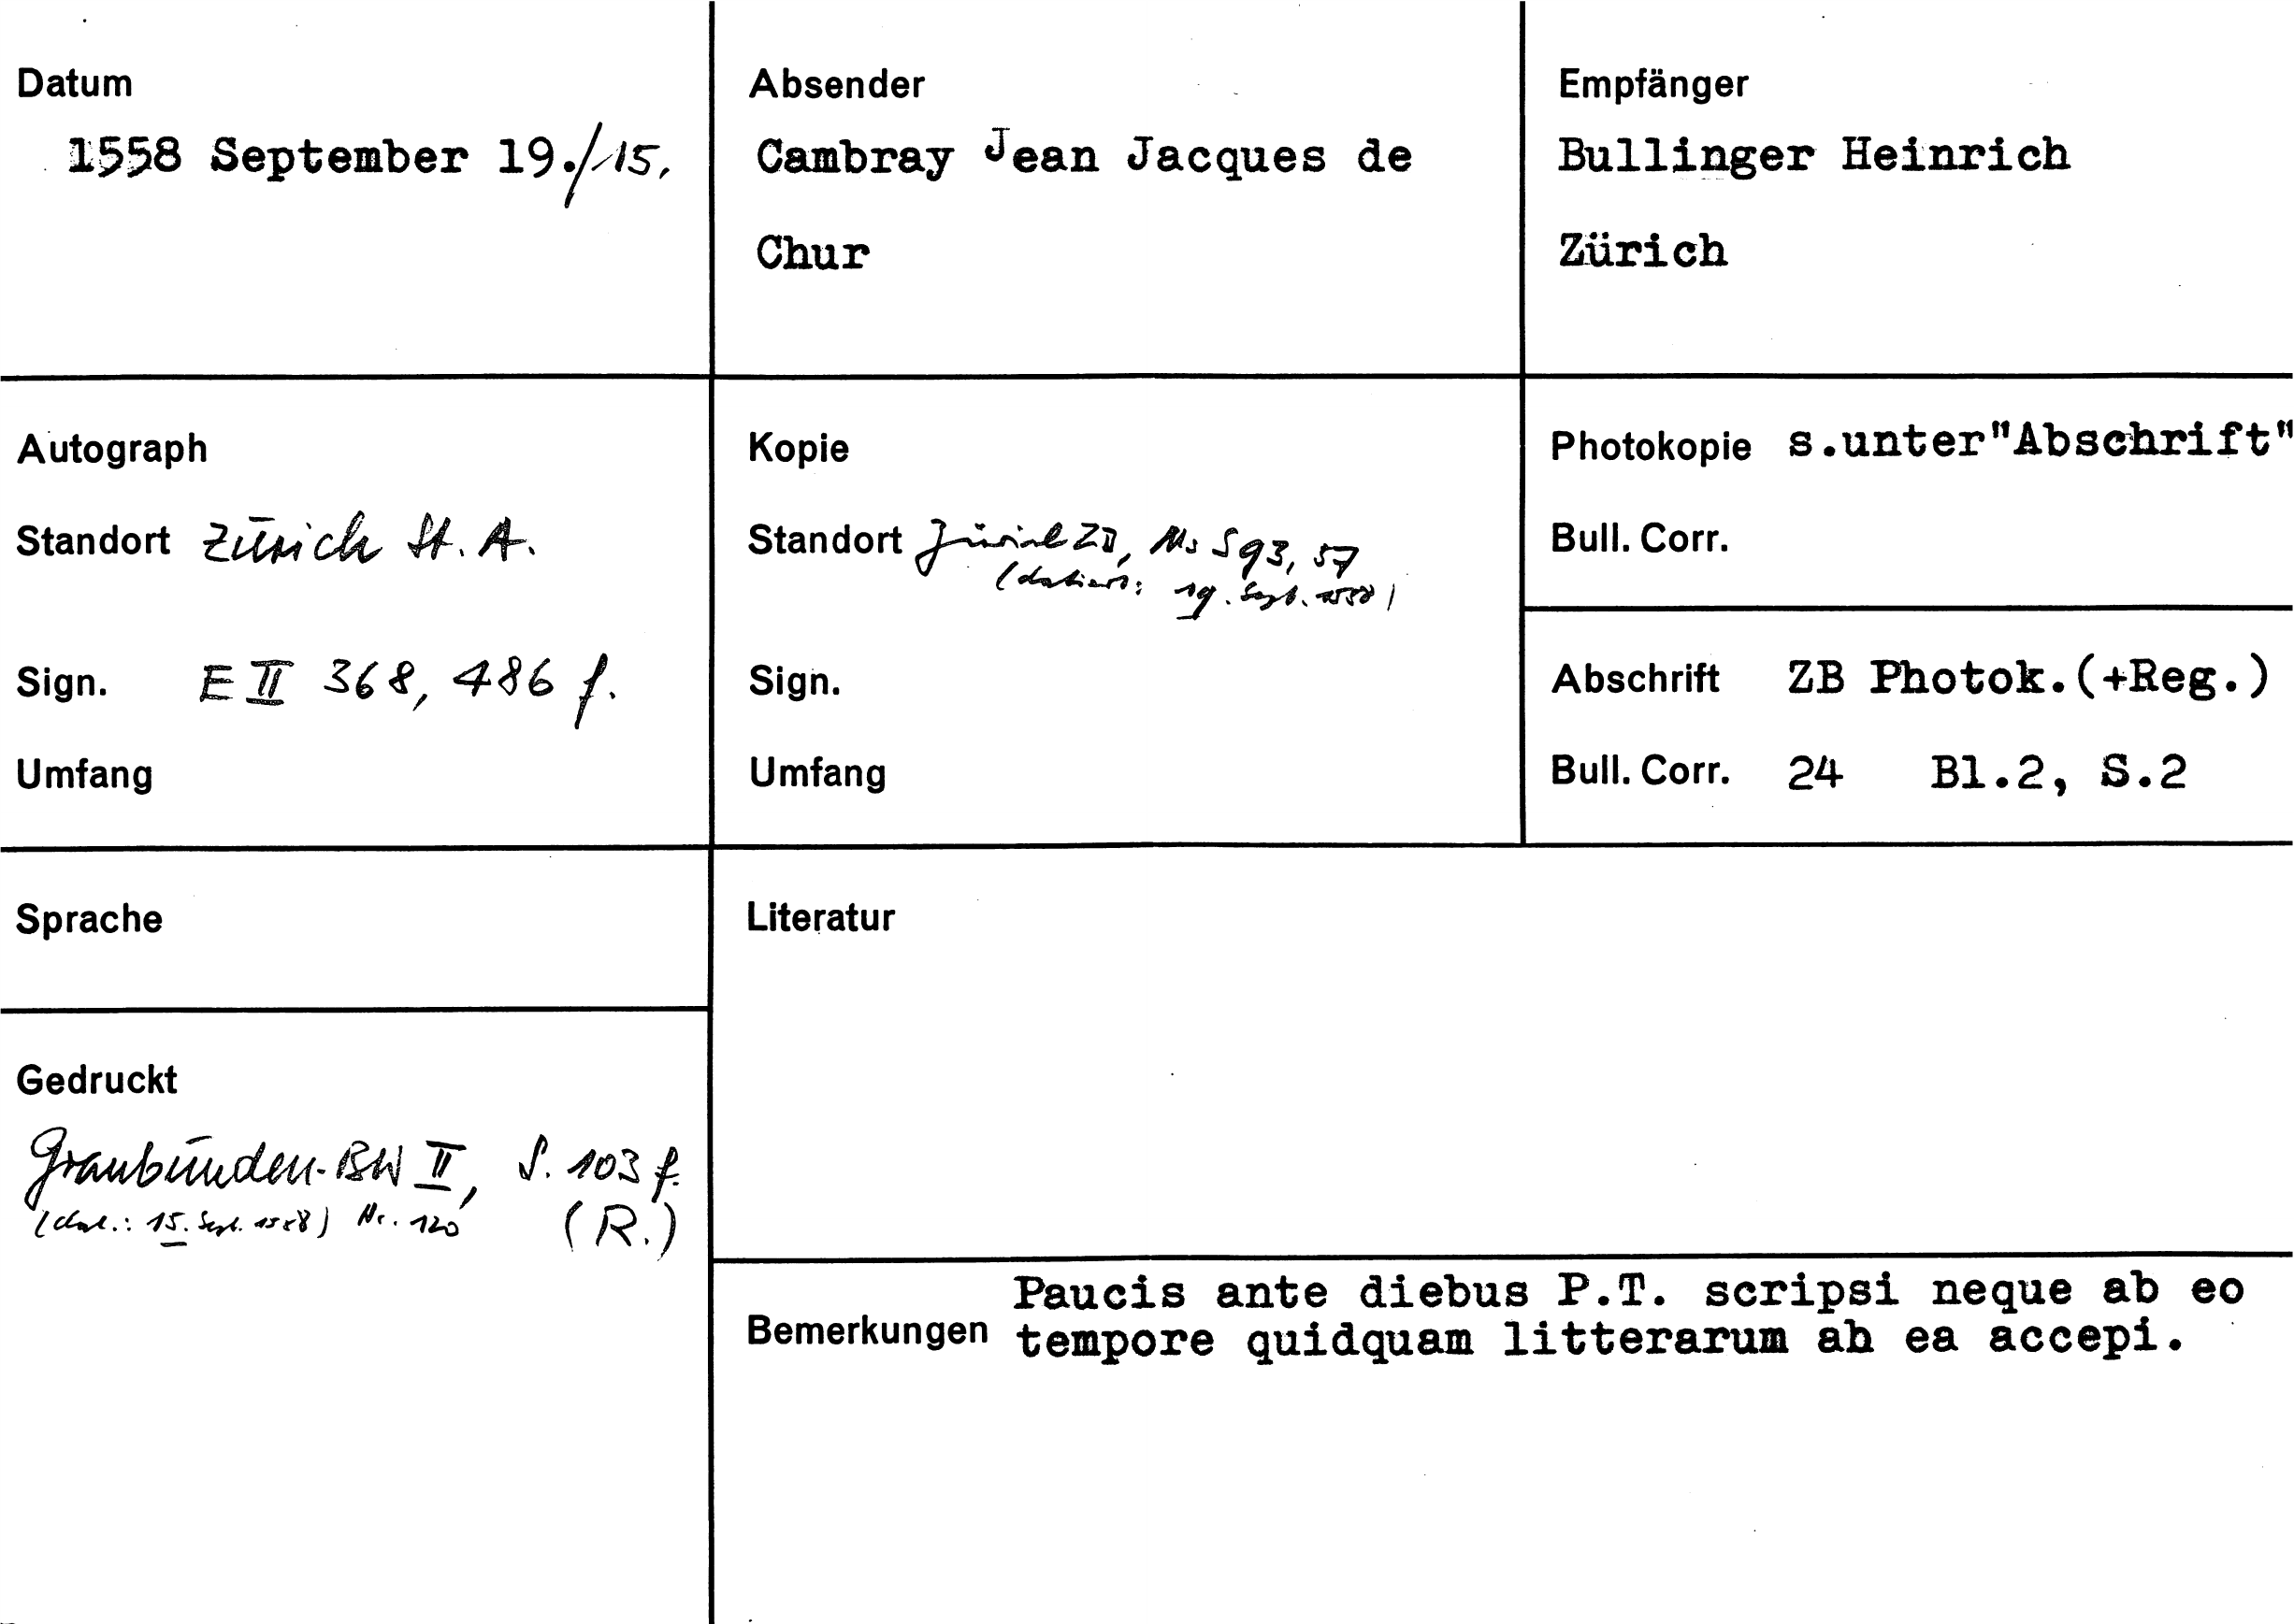 Datum
1558 September 19./15.
Absender
Cambray Jean Jacques de
Chur
Empfänger
Bullinger Heinrich
Zürich
Autograph
Standort Zürich St. A.
Sign. E II 368, 486 f.
Umfang
Kopie
Standort Zürich ZB, Ms S 93, 57
(datiert: 19. Sept. 1558)
Sign.
Umfang
Photokopie s.unter"Abschrift"
Bull. Corr.
Abschrift ZB Photok.(+Reg.)
Bull. Corr. 24 Bl.2, S.2
Sprache
Gedruckt
Graubünden-BW II, S. 103 f.
(dat.: 15. Sept. 1558) Nr. 120 (R.)
Literatur
Bemerkungen
Paucis ante diebus P.T. scripsi neque ab eo
tempore quidquam litterarum ab ea accepi.